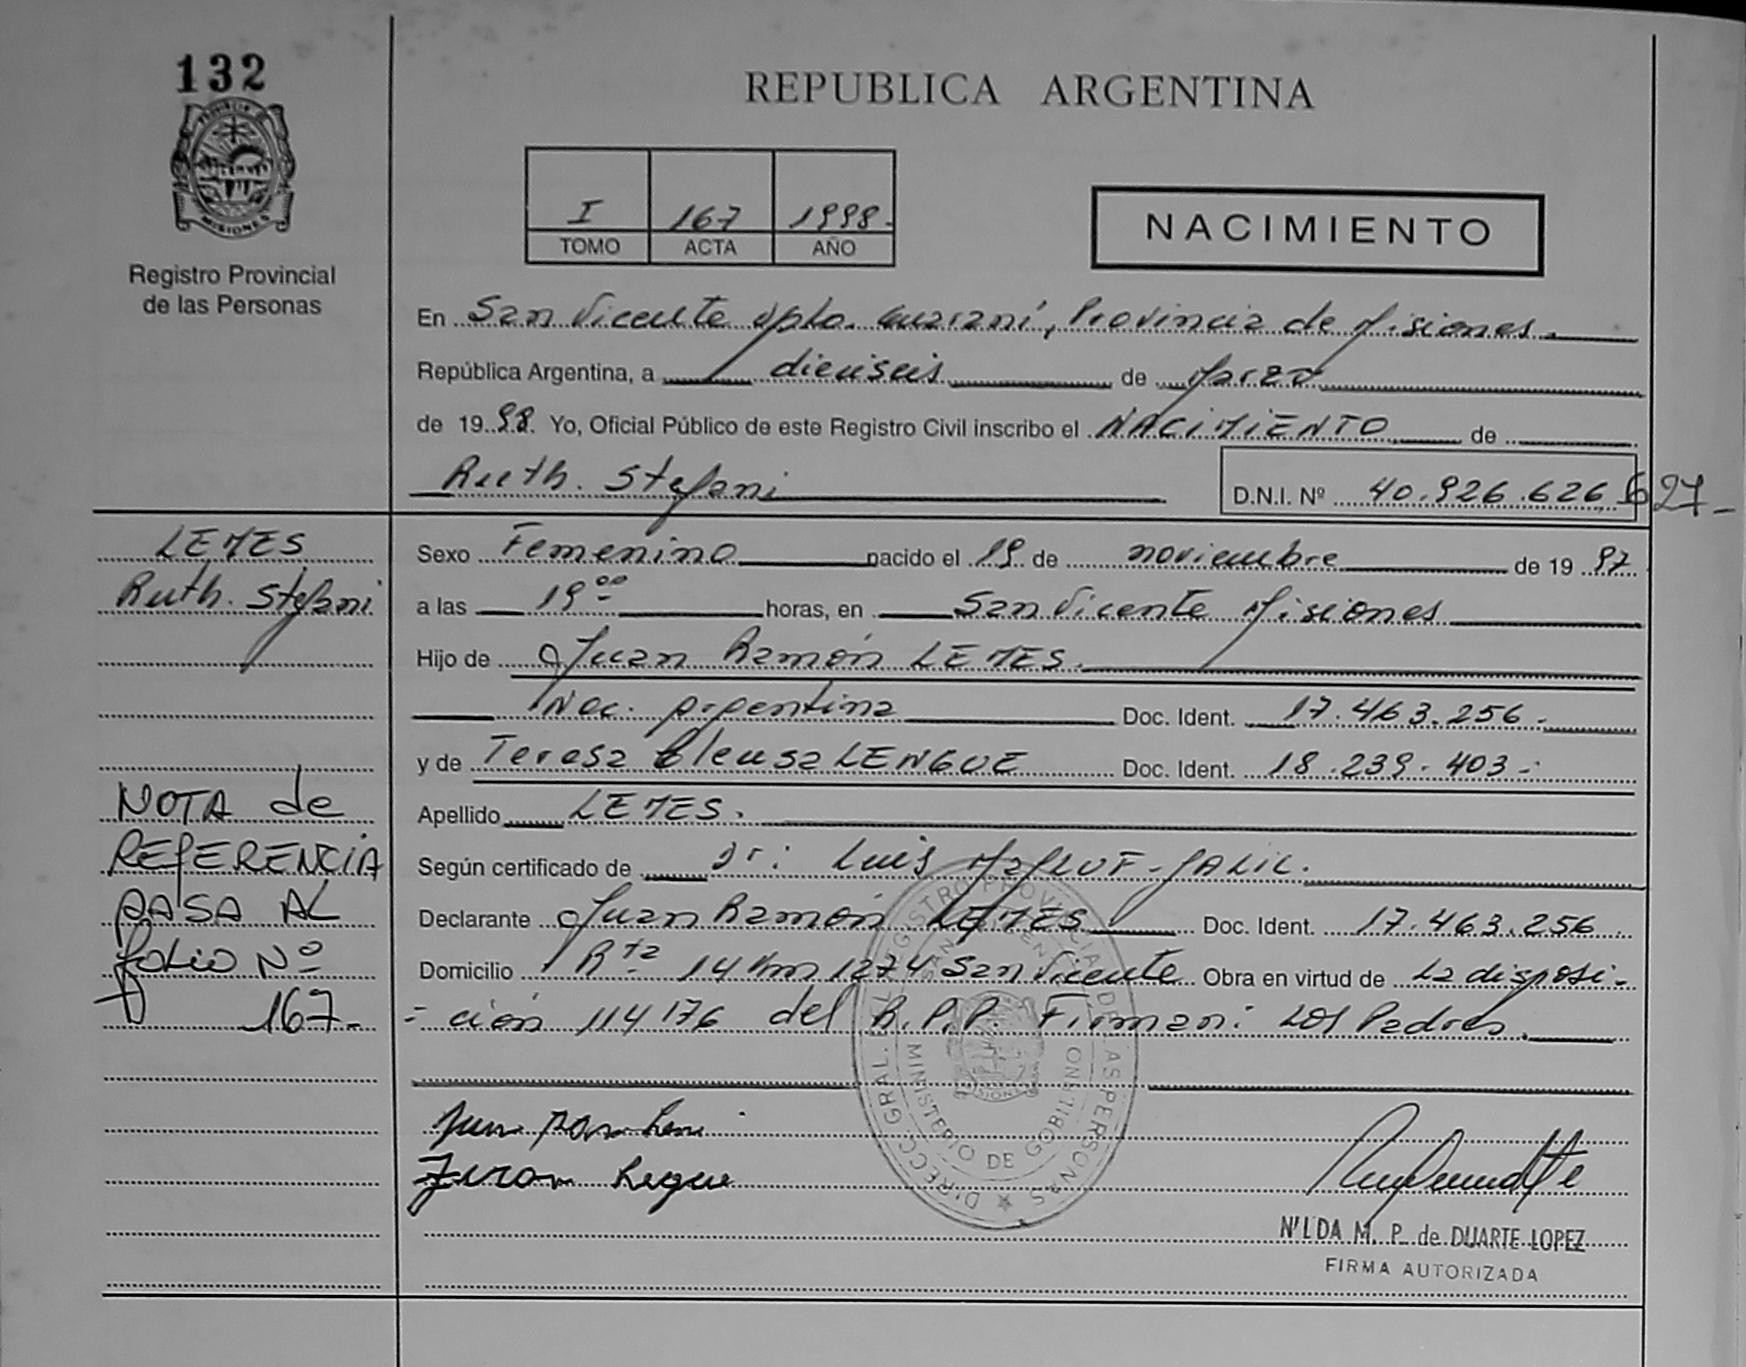 132
REPUBLICA ARGENTINA
I 167 1998.
TOMO ACTA AÑO
NACIMIENTO
MISIONES
Registro Provincial
de las Personas
En San Vicente Dpto. Guaraní, Provincia de Misiones.
República Argentina, a dieciseis de Marzo
de 19 98. Yo, Oficial Público de este Registro Civil inscribo el NACIMIENTO de
Ruth. Stefani D.N.I. Nº 40.926.626 627-
LEMES
Ruth. Stefani
Sexo Femenino nacido el 19 de noviembre de 19 97
a las 19 00 horas, en San Vicente Misiones
Hijo de Juan Ramón LEMES.
Nac. Argentina Doc. Ident. 17.463.256.-
y de Teresa Cleusa LENGUE Doc. Ident. 18.239.403.-
Apellido LEMES.
Según certificado de Dr: Luis
Declarante Juan Ramón LEMES Doc. Ident. 17.463.256
Domicilio Rta 14 Km 1274 San Vicente Obra en virtud de La disposi-
-ción 114176 del R.P.P. Firman: Los Padres.
NOTA de
REFERENCIA
PASA AL
folio Nº
167-
DIRECC. GRAL. REGISTRO PROVINCIAL DE LAS PERSONAS
MINISTERIO DE GOBIERNO
NILDA M. P. de DUARTE LOPEZ
FIRMA AUTORIZADA